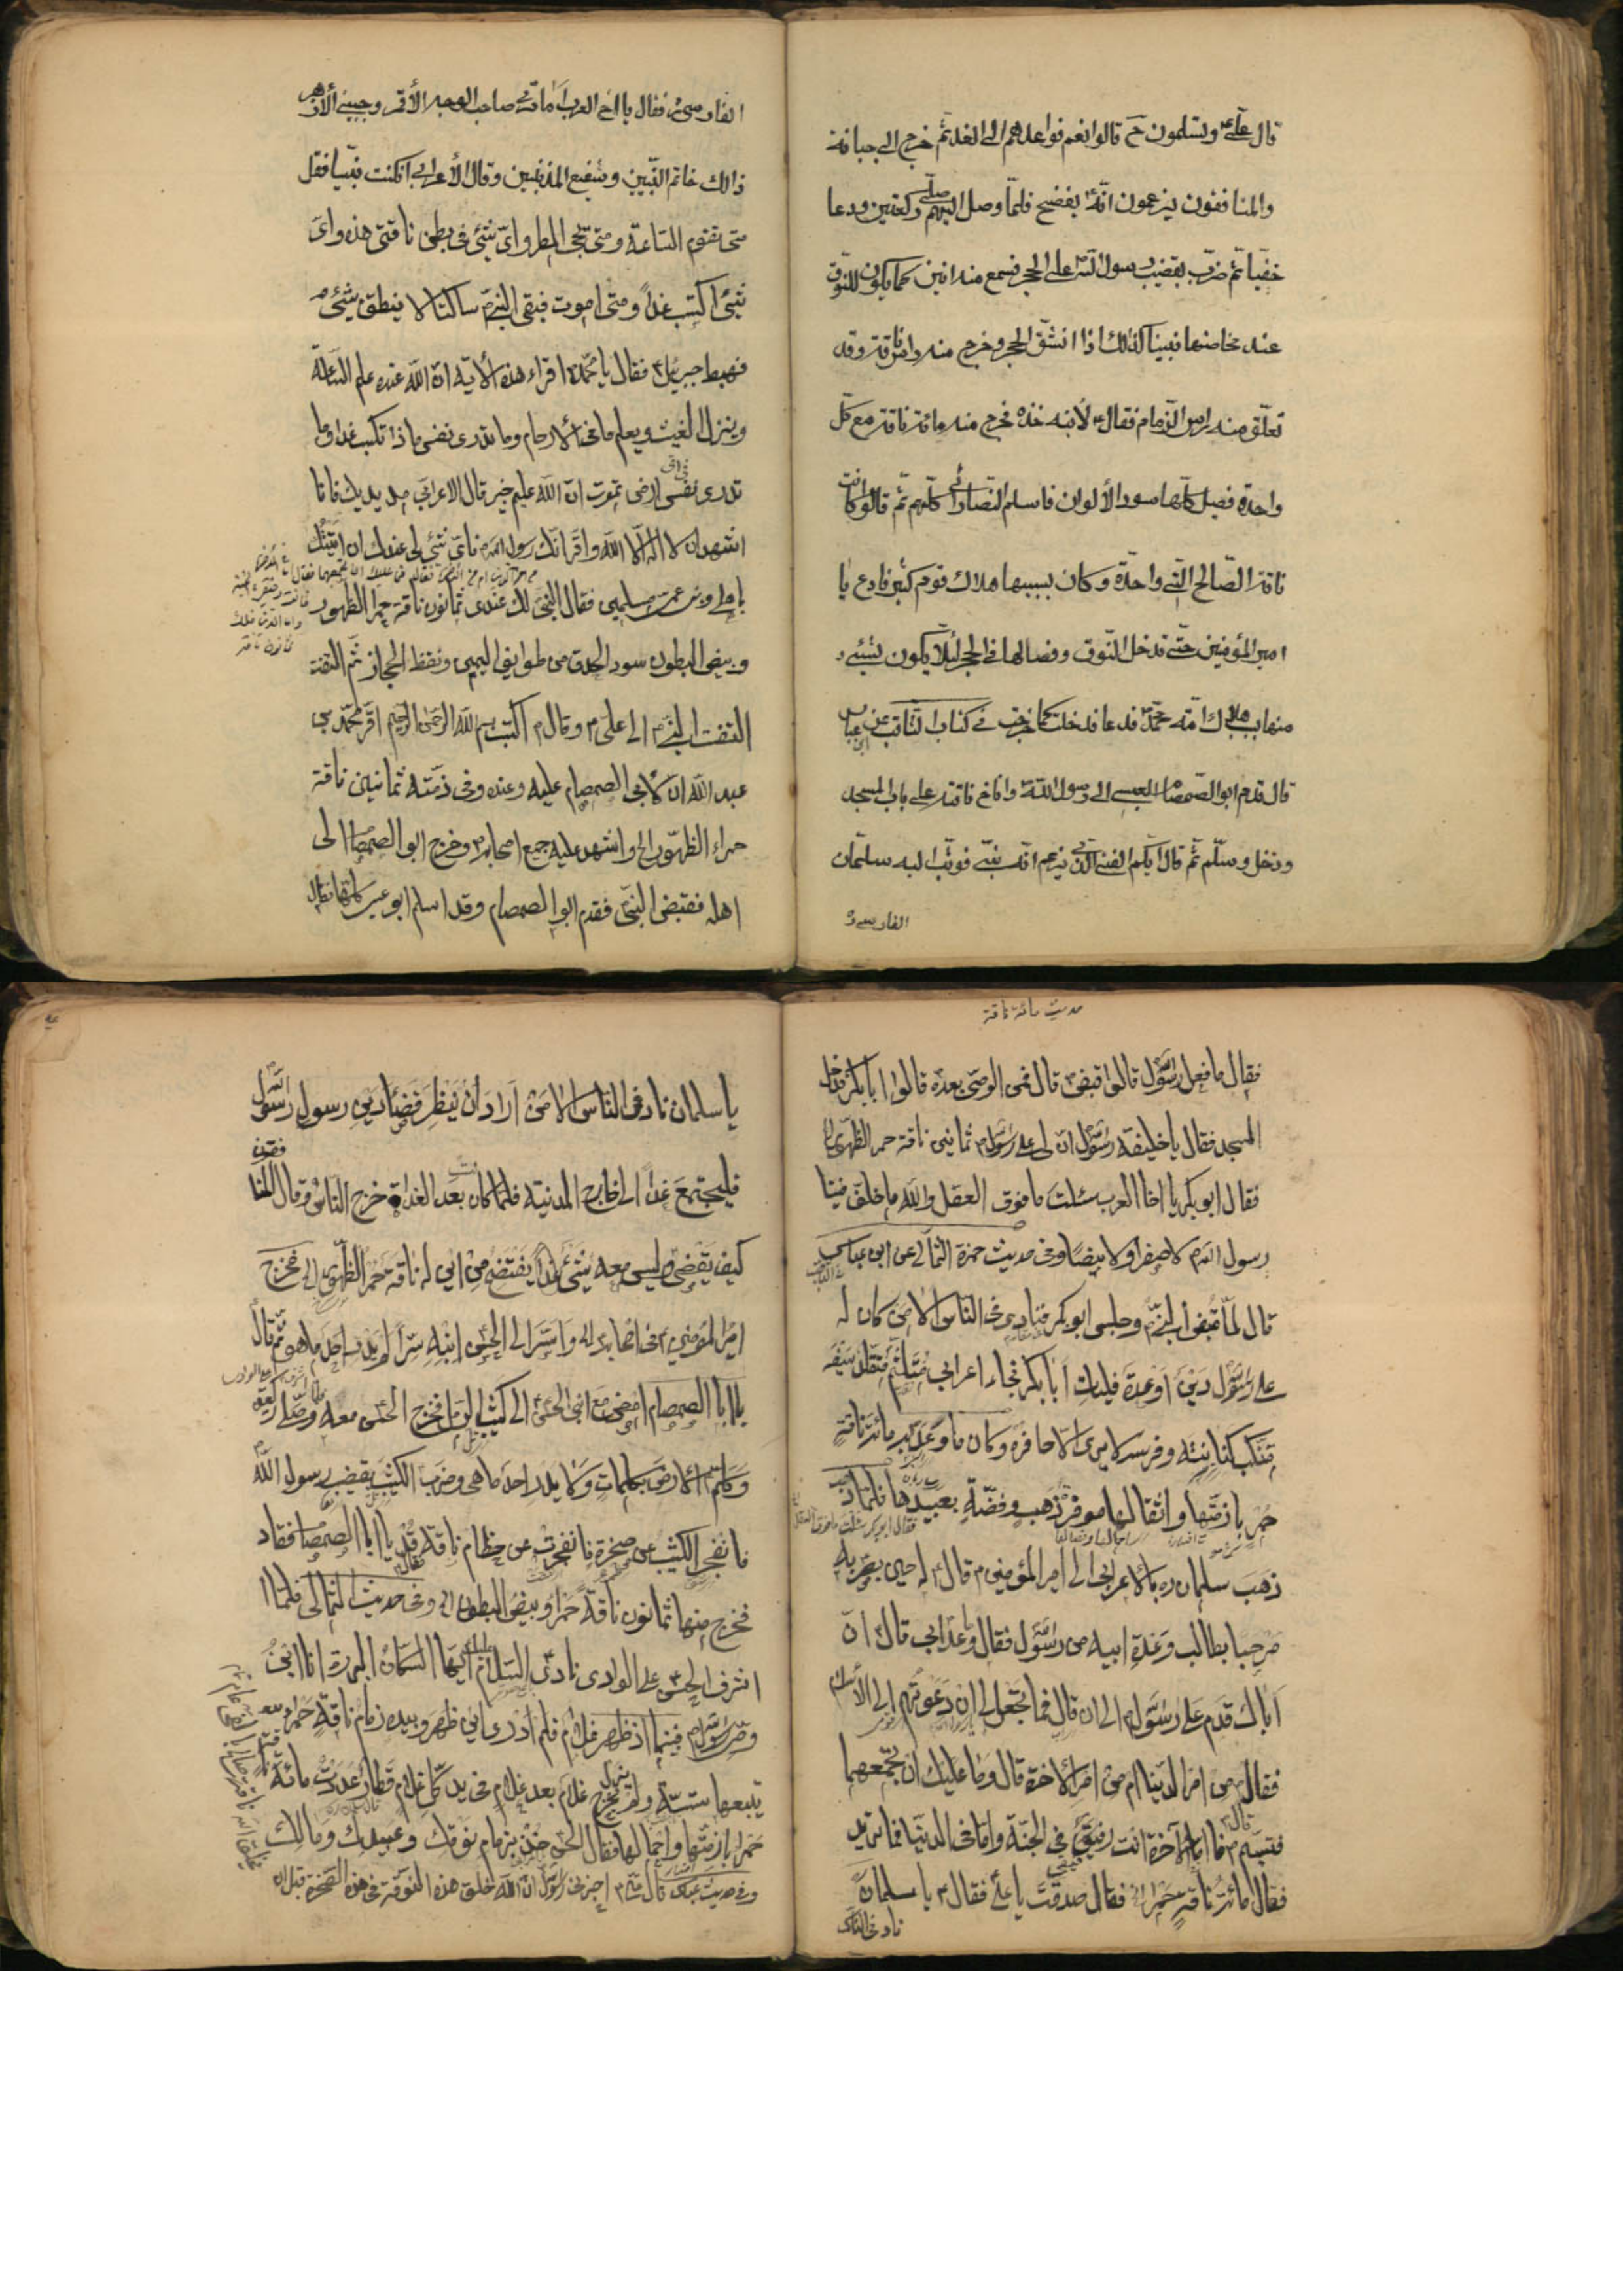 قال علىّ ع وتسلمون ح قالوا نعم فواعدهم الى الغد ثمّ خرج الى جبانة
والمنافقون يزعمون انّه يفضح فلمّا وصل اليهم صلّى ركعتين ودعا
خفيّا ثمّ ضرب بقضيب رسول الله على الحجر فسمع منه انين كما يكون للنوق
عند مخاضها فبينا كذلك اذا انشقّ الحجر وخرج منه راس ناقة وقد
تعلّق منه راس الزمام فقال ع لأبنه خذه فخرج منه مائة ناقة مع كلّ
واحدة فصيل كلّها سود الألوان فاسلم النّصارى كلّهم ثمّ قالوا كانت
ناقة الصّالح النّبى واحدة وكان بسببها هلاك قوم كثير فادع يا
امير المؤمنين حتّى تدخل النّوق وفصالها فى الحجر لئلّا يكون شيئى
منها سبب هلاك امّة محمّد فدعا فدخلت كما خرجت فى كتاب الثاقب عن ابن عباس
قال قدم ابو الصّمصام العبسى الى رسول الله واناخ ناقته على باب المسجد
ودخل وسلّم ثمّ قال ايّكم الفتى الّذى يزعم انّه نبىّ فوثب اليه سلمان
الفارسى ر
الفارسى ر فقال يا اخ العرب اما ترى صاحب الوجه الأقمر وجبين الأزهر
ذالك خاتم النّبيين وشفيع المذنبين وقال الأعرابى ان كنت نبيّا فقل
متى تقوم السّاعة ومتى يجئ المطر واىّ شئ فى بطن ناقتى هذه واى
شئ اكتسب غداً ومتى اموت فبقى النبىّ ساكتا لا ينطق بشئ
فهبط جبرئيل فقال يا محمّد اقراء هذه الاية انّ الله عنده علم السّاعة
وينزل الغيث ويعلم ما فى الارحام وما تدرى نفس ماذا تكسب غدا وما
تدرى نفس باى ارض تموت انّ الله عليم خبير قال الاعرابى مد يديك فانا
اشهد ان لا اله الّا الله واقرّ انّك رسول الله فاىّ شئ لى عندك ان اتيتك
باهلى وبنى عمى مسلمين فقال النبىّ لك عندى ثمانون ناقة حمر الظهور
وبيض البطون سود الحدق من طوايف اليمن ونقط الحجاز ثمّ التفت
التفت النبىّ الى علىّ وقال اكتب بسم الله الرحمن الرحيم اقرّ محمّد بن
عبد الله انّ لابى الصمصام عليه وعنده وفى ذمّته ثمانين ناقة
حمراء الظّهور الخ واشهد عليه جميع اصحابه وخرج ابو الصمصام الى
اهله فقبض النبىّ فقدم ابو الصمصام وقد اسلم ابو عبس كلّها فقال
حديث مائة ناقة
فقال ما فعل رسول الله قالوا قبض قال فمن الوصى بعده قالوا ابا بكر فدخل
المسجد فقال يا خليفة رسول الله ان لى على رسول الله ثمانين ناقة حمر الظهور الخ
فقال ابو بكر يا اخا العرب سئلت ما فوق العقل والله ما خلف فينا
رسول الله لا صفرا ولا بيضا وفى حديث حمزة الثمالى عن ابن عباس
قال لمّا قبض النبىّ وجلس ابو بكر فنادى فى الناس الا من كان له
على رسول الله دين او عدة فليات ابا بكر فجاء اعرابى متلثّم متقلّد سيفه
متنكب كنانته وفرسه لا يرى الا حافره وكان ما وعد به مائة ناقة
حمر بازمتها واثقالها موقرة ذهب وفضّة بعبيدها فلما
ذهب سلمان ره بالاعرابى الى امير المؤمنين قال له حين بصر به
مرحبا بطالب وعدة ابيه من رسول الله فقال وما وعد ابى قال ان
اباك قدم على رسول الله الى ان قال فما تجعل لى ان دعوتهم الى الأسلام
فقال من امر الدنيا ام من امر الاخرة قال وما عليك ان تجمعهما
فتبسّم قال فاما الآخرة انت رفيقى فى الجنّة واما فى الدنيا فما تريد
فقال مائة ناقة حمراء الخ فقال صدقت يا على فقال يا سلمان
ناد فى الناس
يا سلمان ناد فى الناس الا من اراد ان ينظر قضاء دين رسول الله
فليجتمع غدا الى خارج المدنية فلما كان بعد الغداة خرج الناس وقال المنافقون
كيف يقضى وليس معه شئ غدا يفتضح من اين له ناقة حمر الظهور الى فخرج
امير المؤمنين فى اصحابه واسرّ الى الحسن ابنه سرّا لم يدر احد ما هو ثم قال
يا ابا الصمصام امض مع ابنى الحسن الى كثيب الرمل فخرج الحسن معه وصلى ركعتين
وكلّم الارض بكلمات ولا يدر احد ما هى وضرب الكثيب بقضيب رسول الله
فانفجر الكثيب عن صخرة فانفجرت عن خطام ناقة فقال قد يا ابا الصمصام فقاد
فخرج منها ثمانون ناقة حمرا وبيض البطون الخ وفى حديث الثمالى فلما
اشرف الحسن على الوادى نادى السلام عليك ايها السكان البررة انا ابن
وصى رسول الله فبينما اذ ظهر غلام فلم ادرى اين ظهر وبيده زمام ناقة حمرا
يتبعها ستة ولم يزل يخرج غلام بعد غلام فى يد كلّ غلام قطار عددت مائة
حمرا بازمتها واحمالها فقال الحسن خذ بزمام نوقك وعبيدك ومالك
وفى حديث ابن عباس قال اخبرنى رسول الله ان الله خلق هذه النوقة فى هذه الصخرة قبل ان